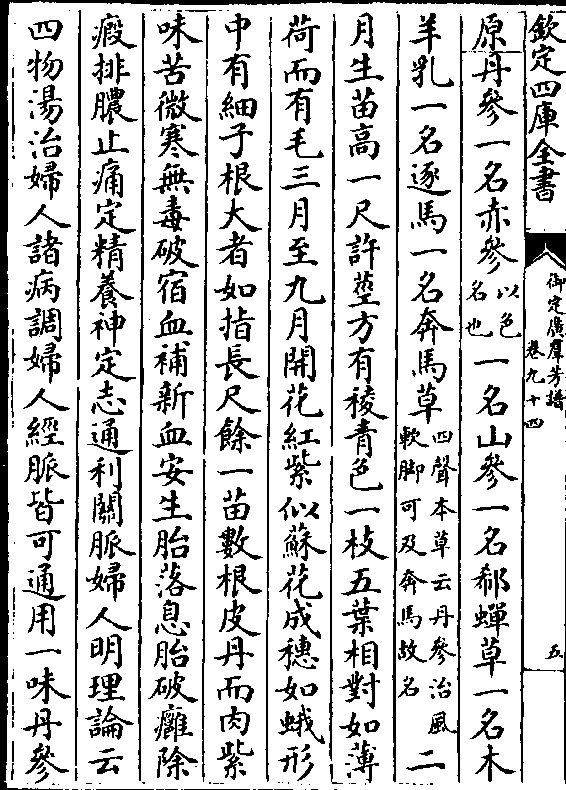 欽定四庫全書
御定廣羣芳譜
卷九十四
五
原丹參一名赤參以色名也一名山參一名郄蟬草一名木
羊乳一名逐馬一名奔馬草四聲本草云丹參治風軟脚可及奔馬故名二
月生苗高一尺許莖方有稜青色一枝五葉相對如薄
荷而有毛三月至九月開花紅紫似蘇花成穗如蛾形
中有細子根大者如指長尺餘一苗數根皮丹而肉紫
味苦微寒無毒破宿血補新血安生胎落息胎破癰除
瘕排膿止痛定精養神定志通利關脈婦人明理論云
四物湯治婦人諸病調婦人經脈皆可通用一味丹參